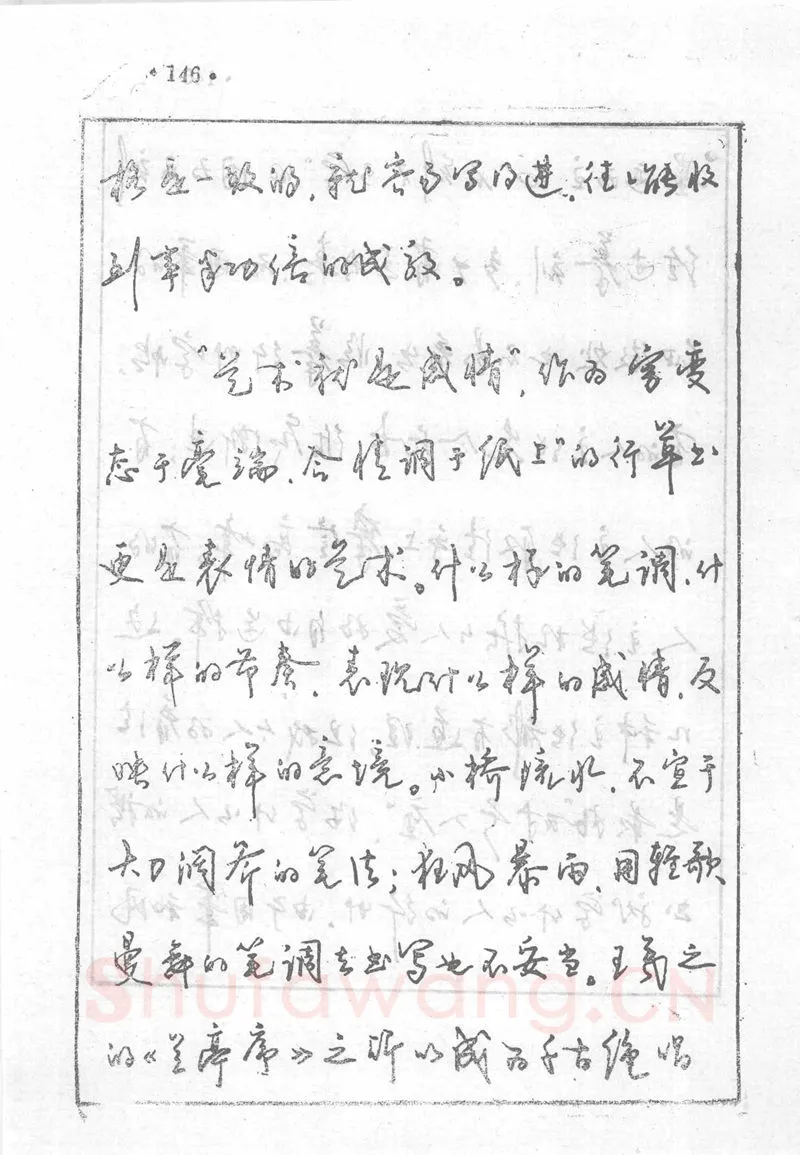 ·146·
格是一致的,就容易写得进,往往能收
到事半功倍的成效。
“艺术就是感情”,作为“穷变
态于毫端,合情调于纸上”的行草书
更是表情的艺术。什么样的笔调、什
么样的节奏,表现什么样的感情,反
映什么样的意境。小桥流水,不宜于
大刀阔斧的笔法;狂风暴雨,用轻歌
曼舞的笔调去书写也不妥当。王羲之
的《兰亭序》之所以成为千古绝唱
Shufawang.CN